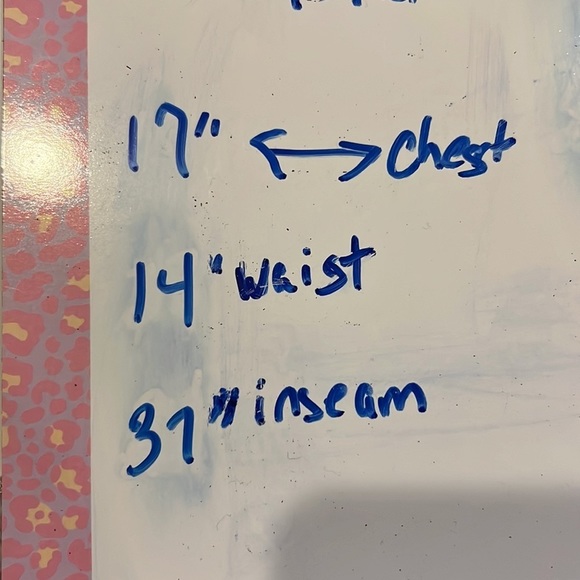 17" ↔ Chest
14" waist
37" inseam